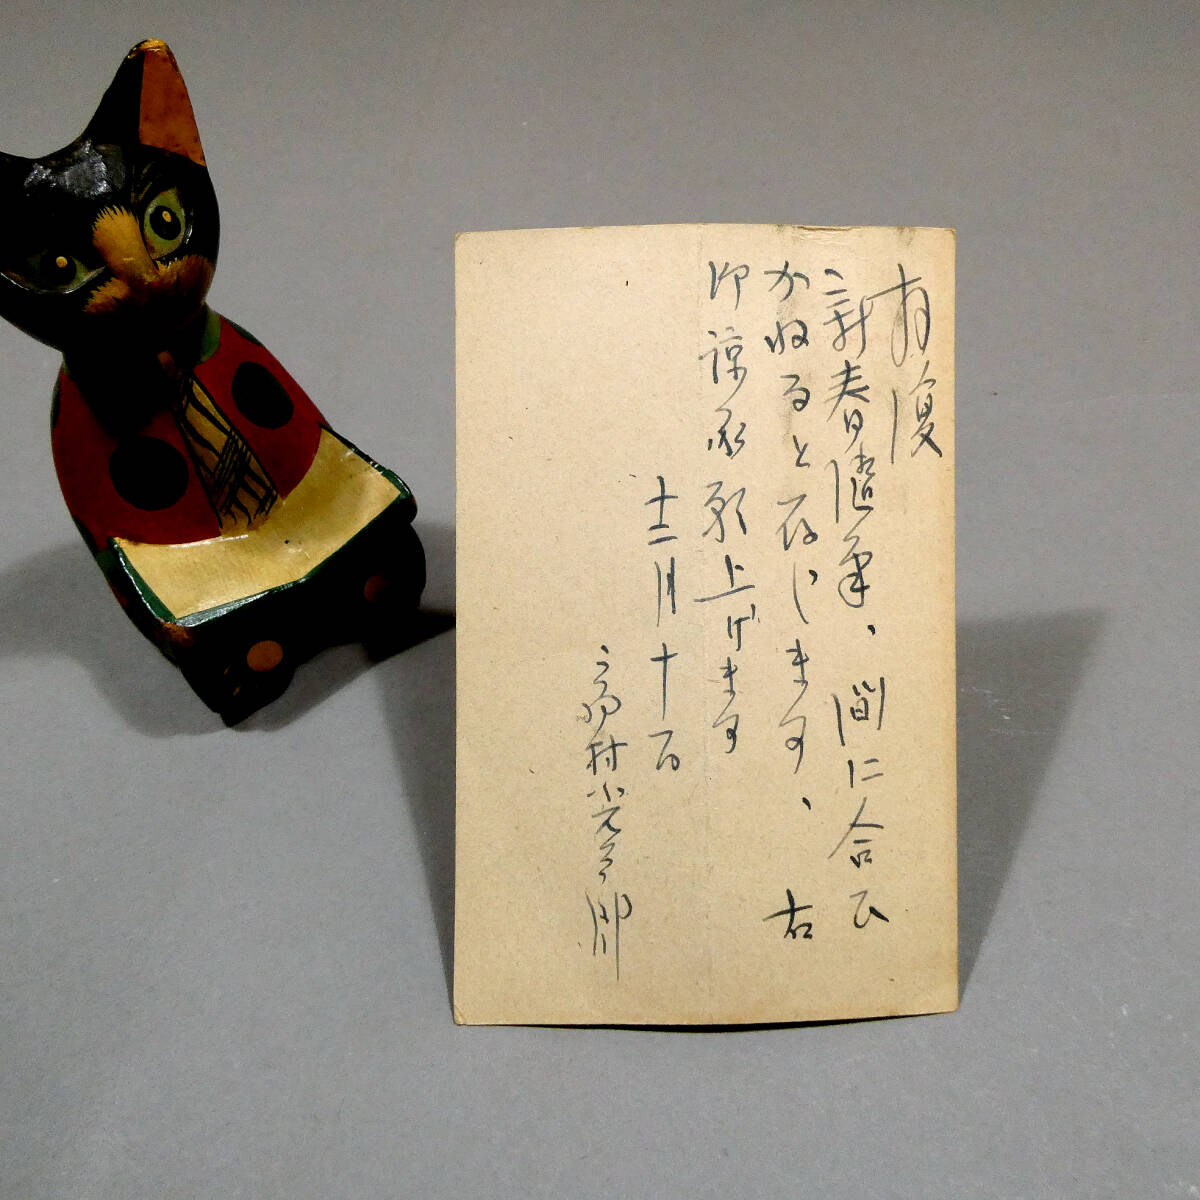 拝復
新春随筆、間に合ひ
かねると存じます、右
御諒承願上げます
十二月十一日
高村光太郎